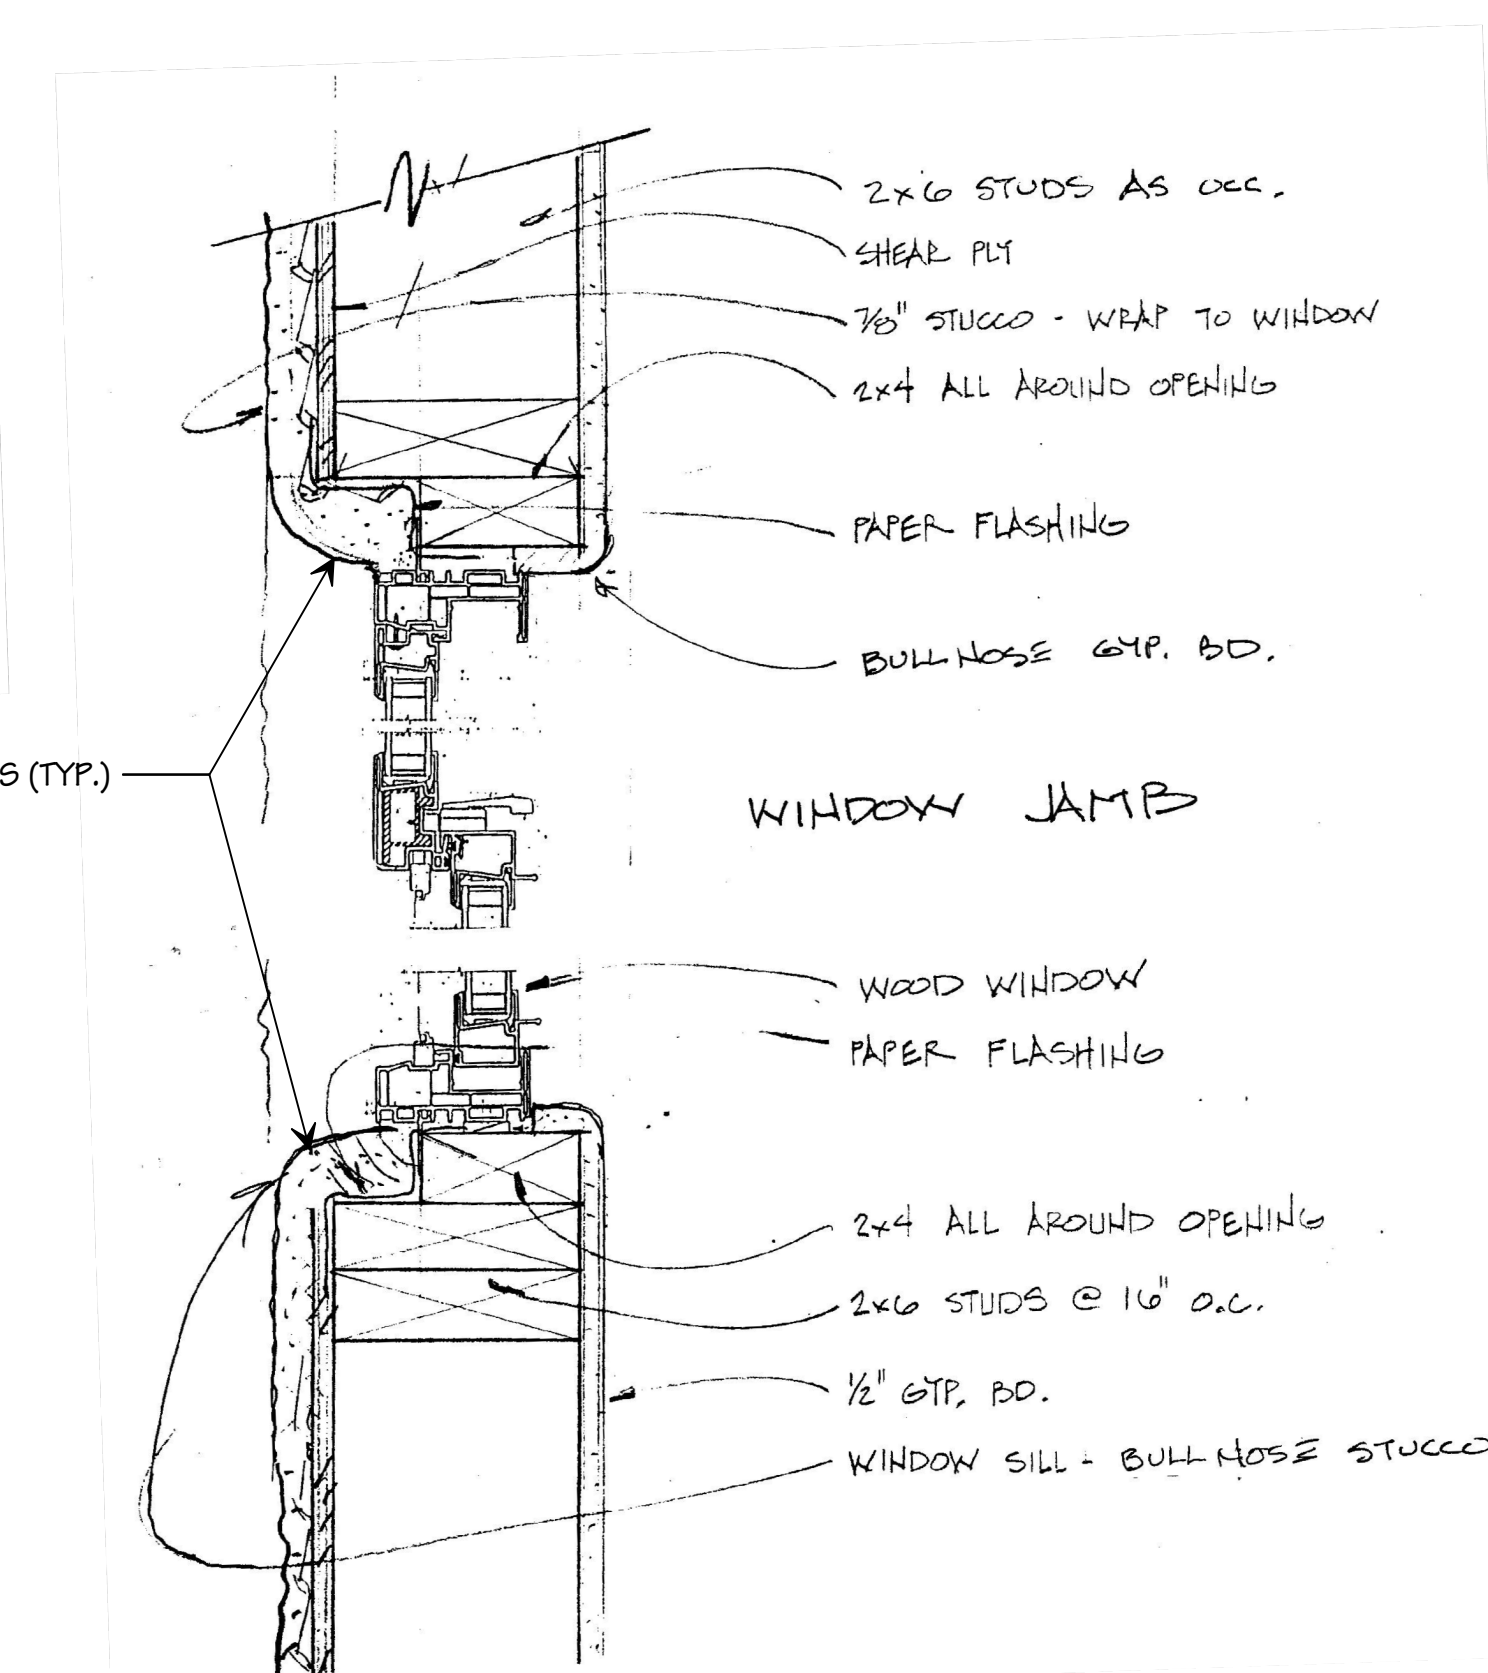 2x6 STUDS AS OCC.
SHEAR PLY
7/8" STUCCO - WRAP TO WINDOW
2x4 ALL AROUND OPENING
PAPER FLASHING
BULLNOSE GYP. BD.
S (TYP.)
WINDOW JAMB
WOOD WINDOW
PAPER FLASHING
2x4 ALL AROUND OPENING
2x6 STUDS @ 16" O.C.
1/2" GYP. BD.
WINDOW SILL - BULLNOSE STUCCO